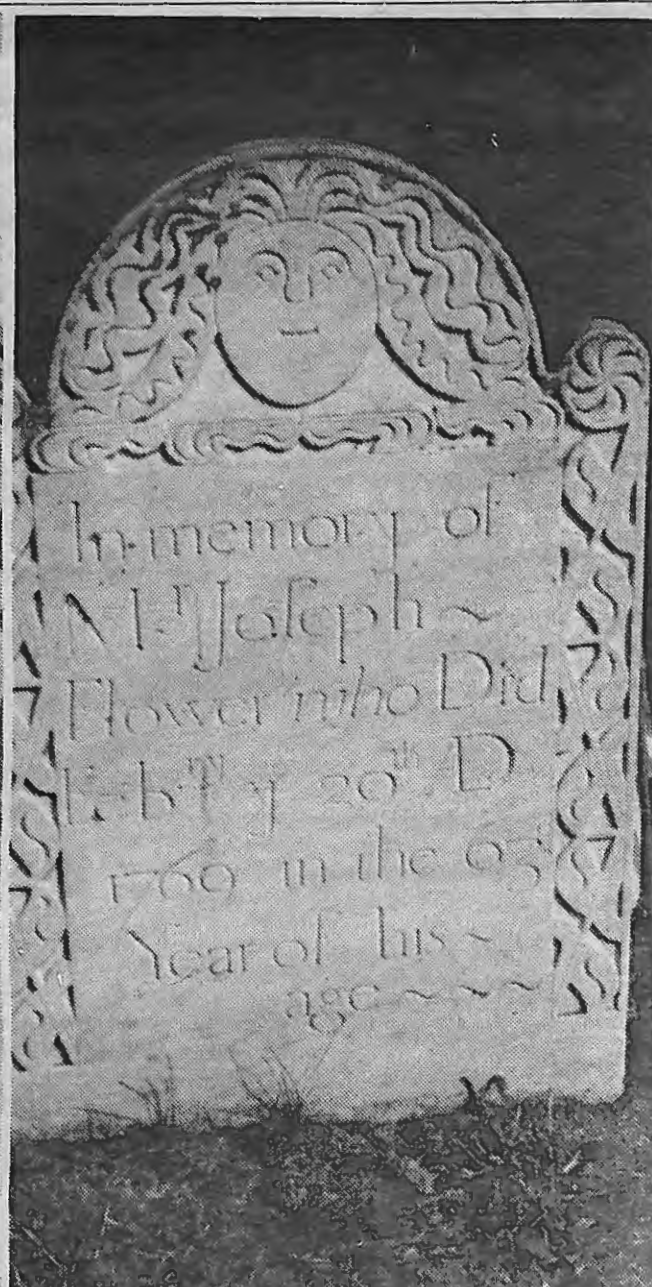 In memory of
Mr Joſeph ~
Flower who Did
Febry y 20th D
1769 in the 63d
Year of his ~
age ~ ~ ~